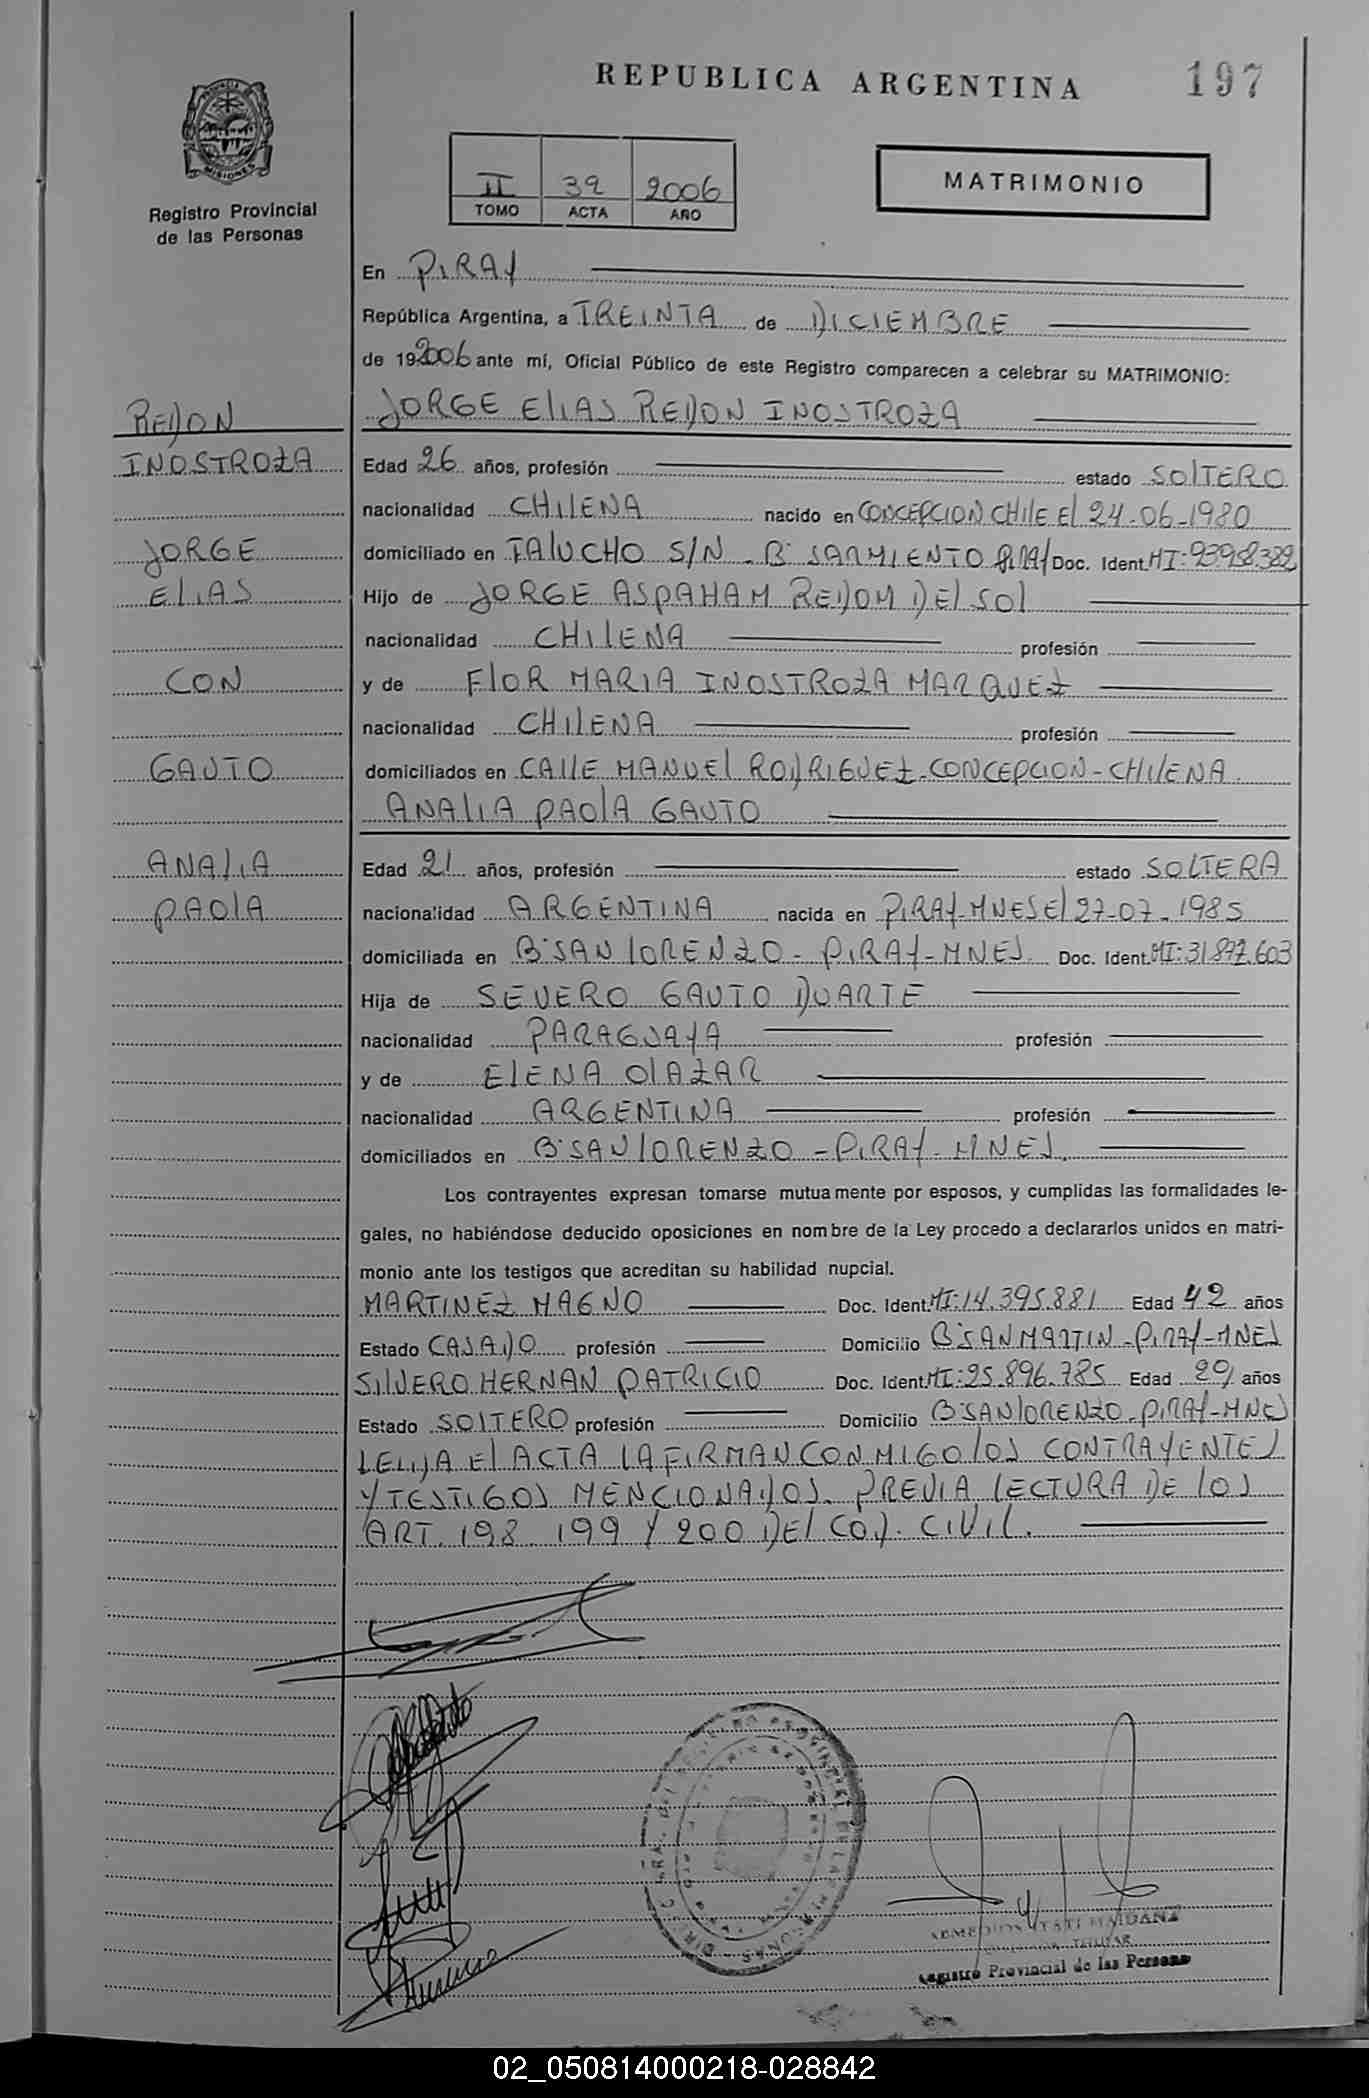 REPUBLICA ARGENTINA 197
MISIONES
Registro Provincial
de las Personas
II 39 2006
TOMO ACTA AÑO
MATRIMONIO
En PIRAY
República Argentina, a TREINTA de DICIEMBRE
de 192006 ante mí, Oficial Público de este Registro comparecen a celebrar su MATRIMONIO:
REDON JORGE ELIAS REDON INOSTROZA
INOSTROZA Edad 26 años, profesión estado SOLTERO
nacionalidad CHILENA nacido en CONCEPCION CHILE El 24-06-1980
JORGE domiciliado en FALUCHO S/N - Bº SARMIENTO PIRAY Doc. Ident. MI: 93.958.389
ELIAS Hijo de JORGE ASPAHAM REDOM DEL SOL
nacionalidad CHILENA profesión
CON y de FLOR MARIA INOSTROZA MARQUEZ
nacionalidad CHILENA profesión
GAUTO domiciliados en CALLE MANUEL RODRIGUEZ-CONCEPCION-CHILENA
ANALIA PAOLA GAUTO
ANALIA Edad 21 años, profesión estado SOLTERA
PAOLA nacionalidad ARGENTINA nacida en PIRAY-MNES El 27-07-1985
domiciliada en Bº SAN LORENZO - PIRAY - MNES. Doc. Ident. MI: 31.872.603
Hija de SEVERO GAUTO DUARTE
nacionalidad PARAGUAYA profesión
y de ELENA OLAZAR
nacionalidad ARGENTINA profesión
domiciliados en Bº SAN LORENZO - PIRAY - MNES.
Los contrayentes expresan tomarse mutuamente por esposos, y cumplidas las formalidades le-
gales, no habiéndose deducido oposiciones en nombre de la Ley procedo a declararlos unidos en matri-
monio ante los testigos que acreditan su habilidad nupcial.
MARTINEZ MAGNO Doc. Ident. MI: 14.395.881 Edad 42 años
Estado CASADO profesión Domicilio Bº SAN MARTIN - PIRAY - MNES
SILVERO HERNAN PATRICIO Doc. Ident. MI: 25.896.785 Edad 29 años
Estado SOLTERO profesión Domicilio Bº SAN LORENZO - PIRAY - MNES
LEIDA El ACTA LA FIRMAN CONMIGO LOS CONTRAYENTES
Y TESTIGOS MENCIONADOS. PREVIA LECTURA DE LOS
ART. 198 199 Y 200 DEL COD. CIVIL.
Registro Provincial de las Personas
02_050814000218-028842